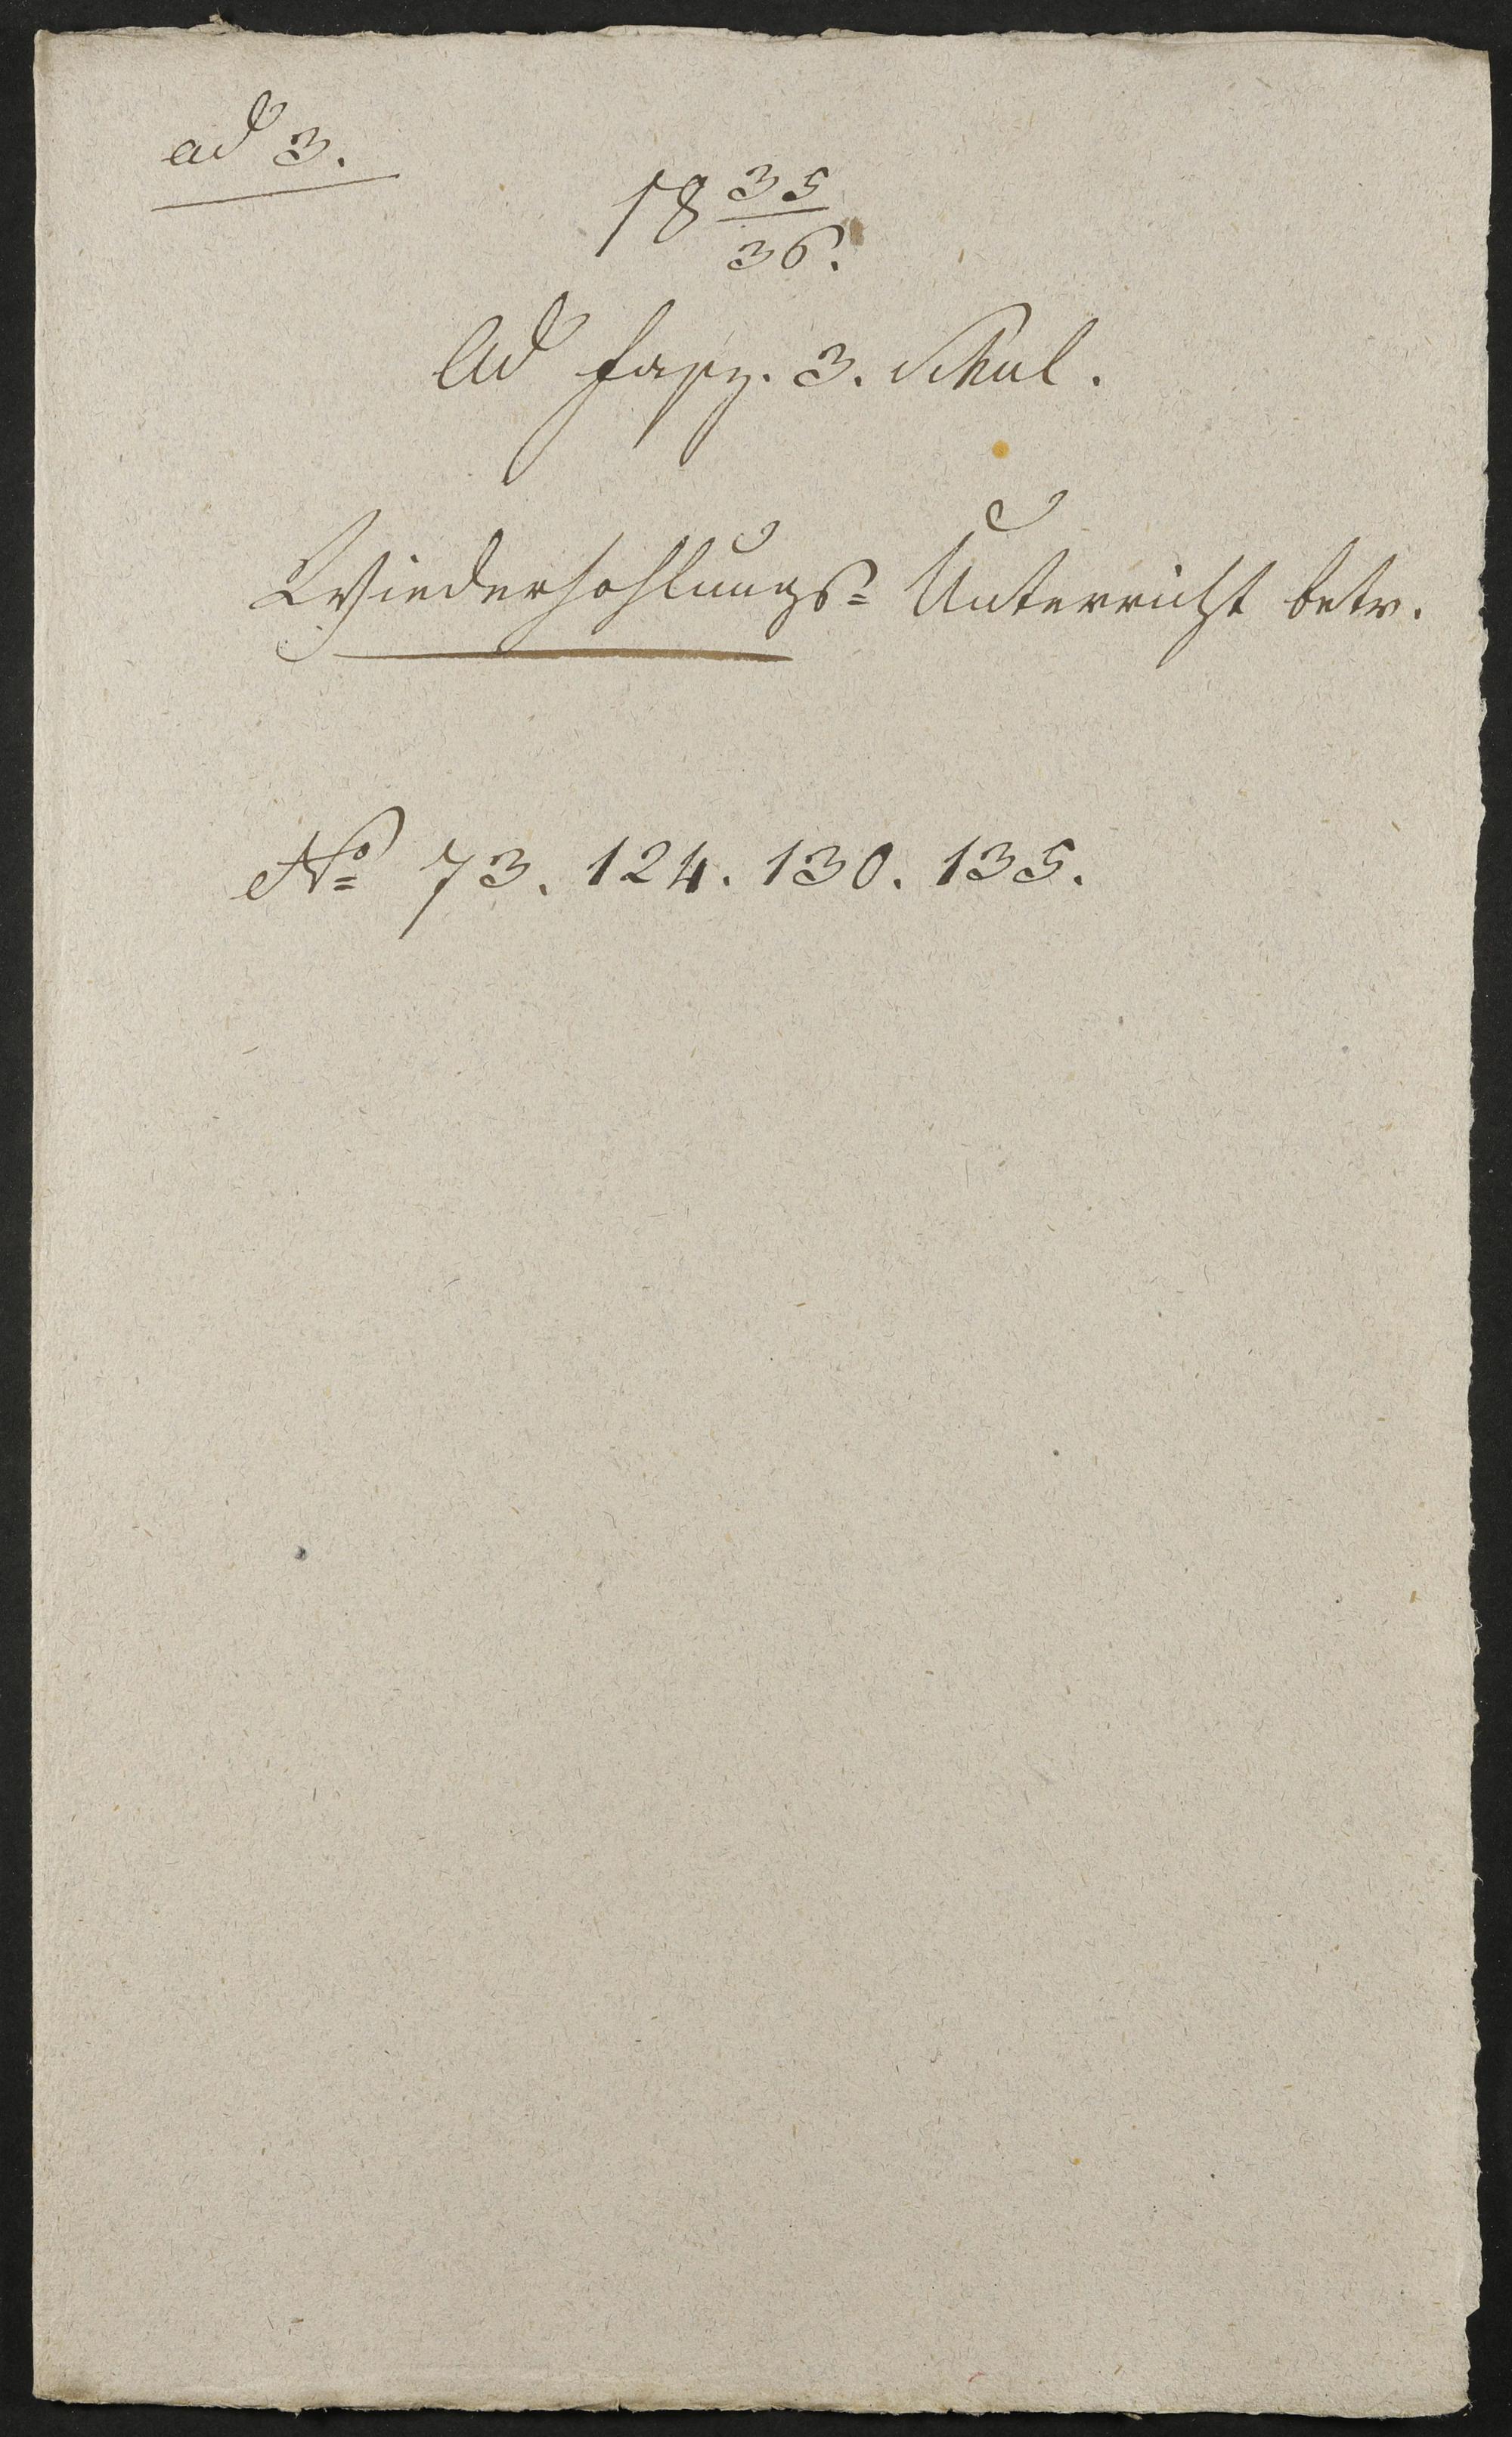 ad 3.
18 35/36.
Ad fasz. 3. Schul.
Wiederhohlungs= Unterricht betr.
No 73. 124. 130. 135.